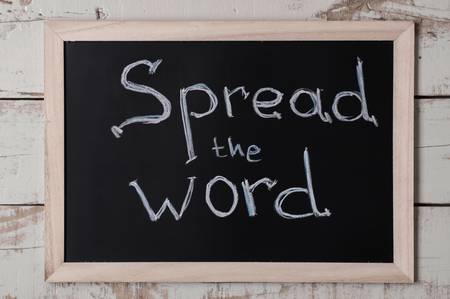 Spread
the
word